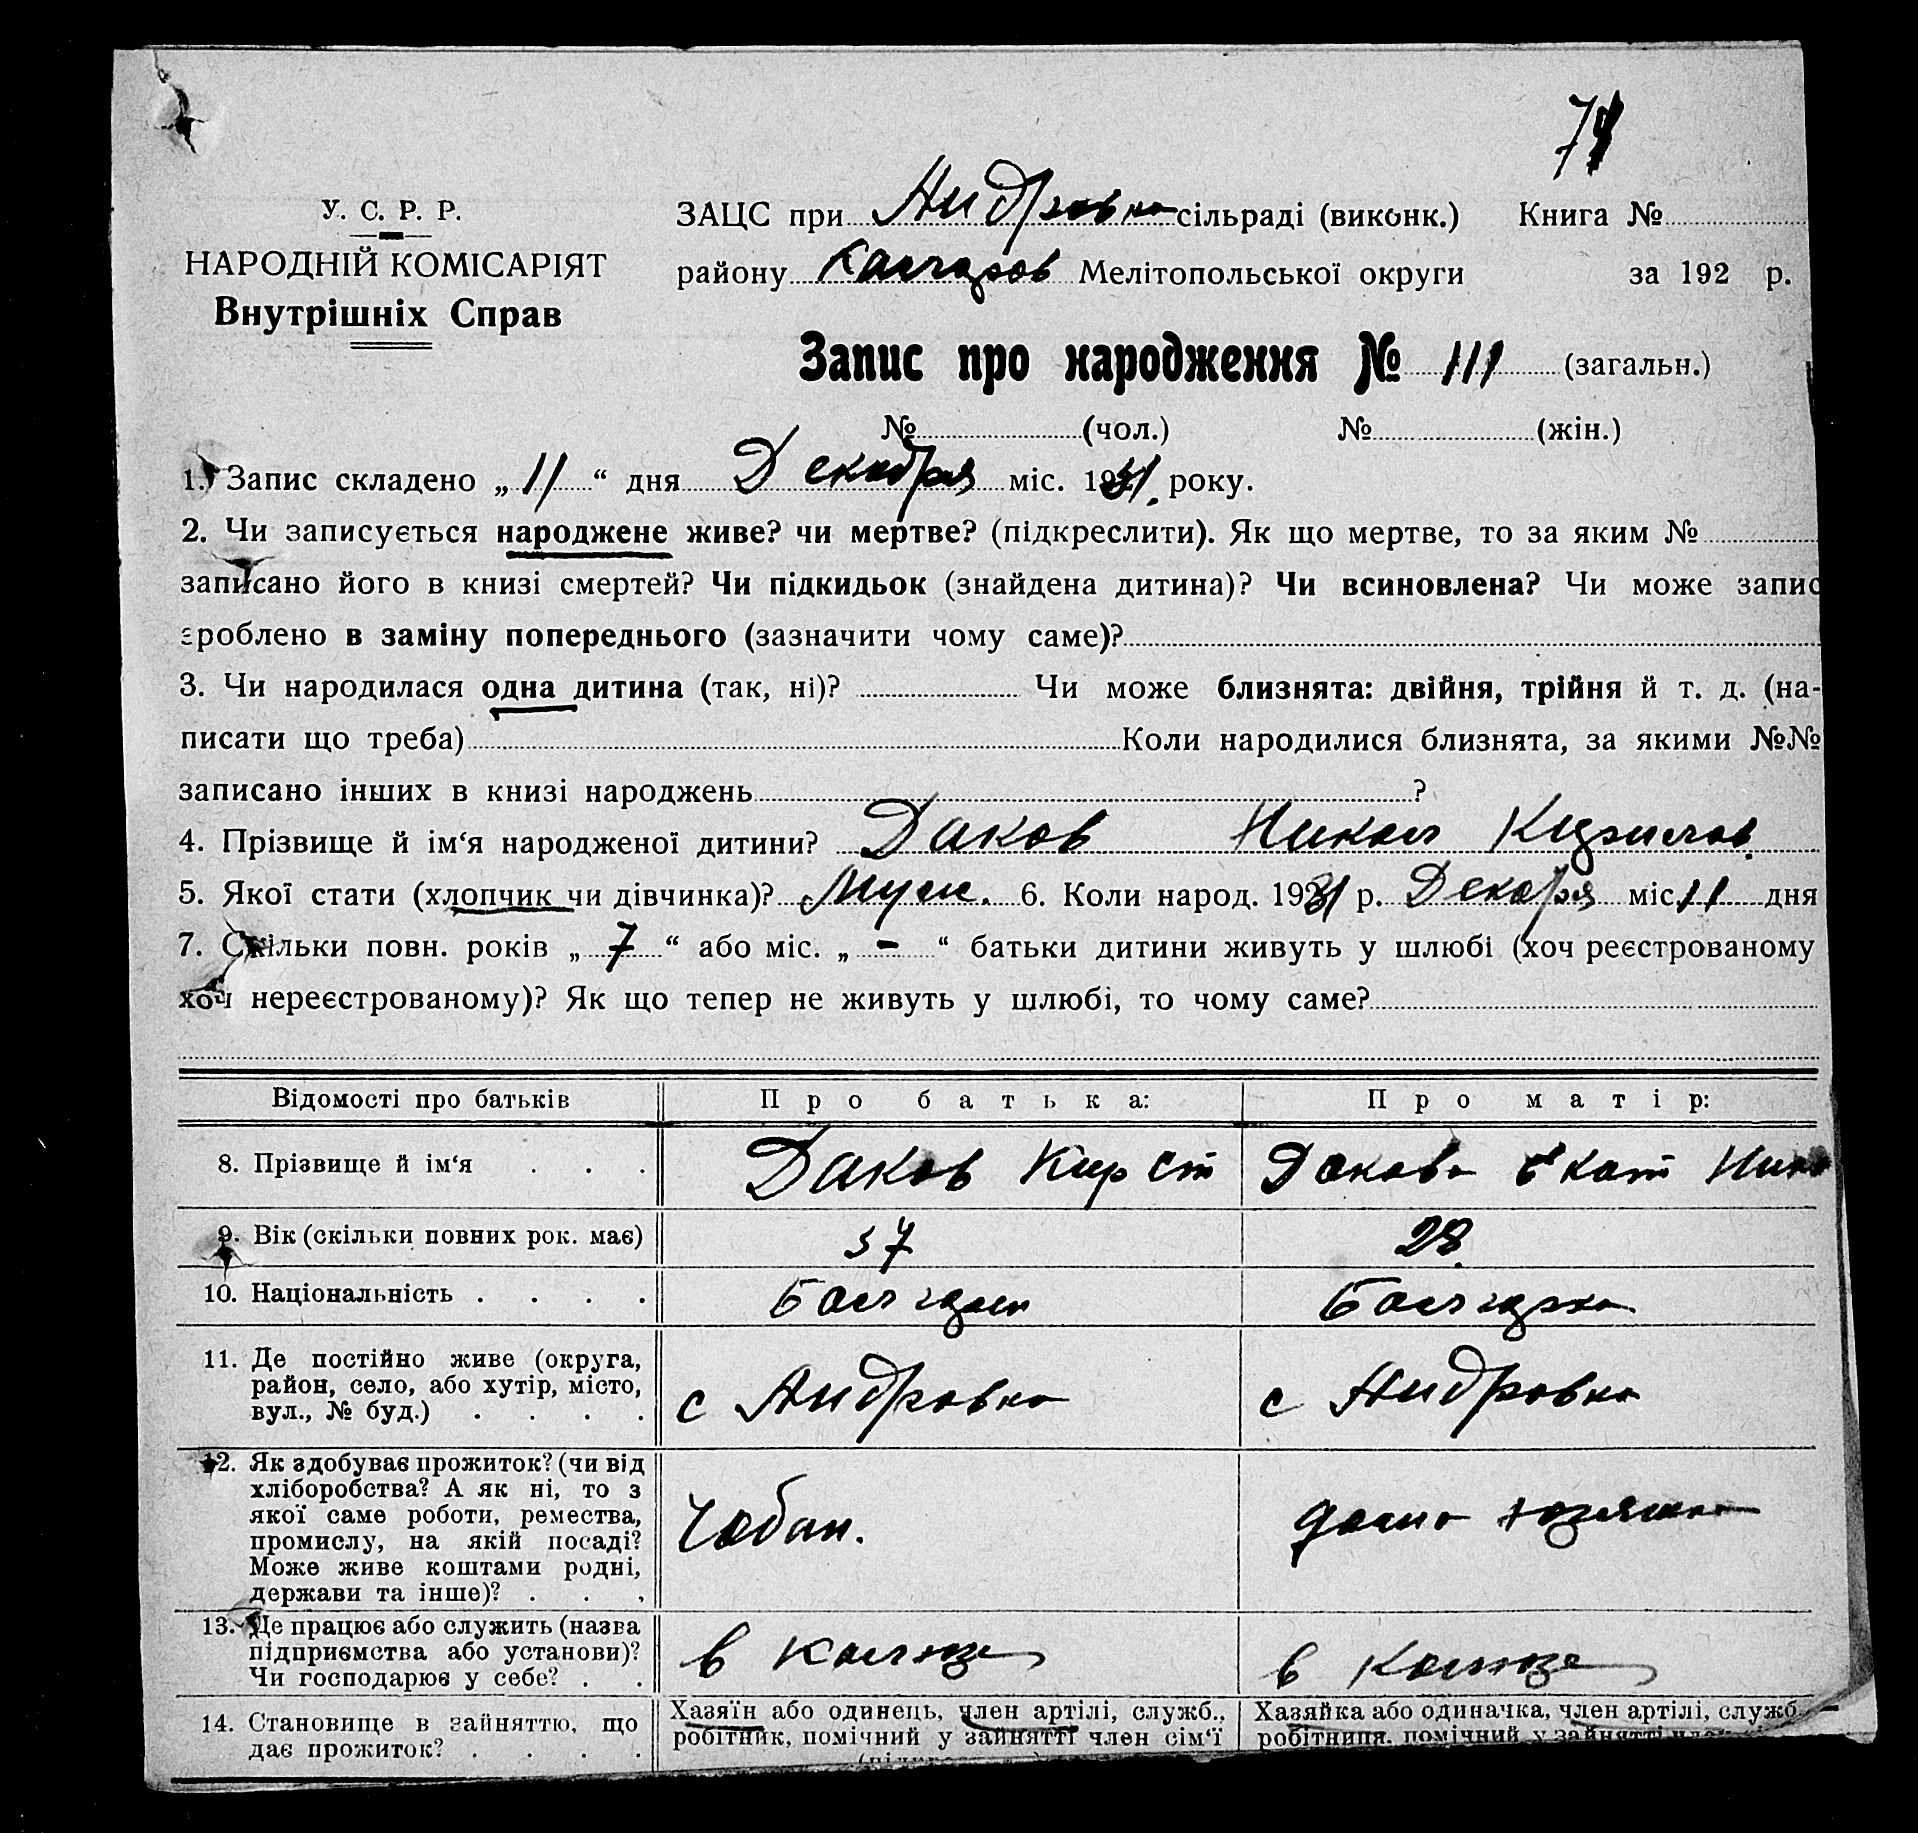 74
У. С. Р. Р.
НАРОДНІЙ КОМІСАРІЯТ
Внутрішніх Справ
ЗАЦС при Андровка сільраді (виконк.) Книга №
району Мелітопольської округи за 192 р.
Запис про народження № 111 (загальн.)
№ (чол.) № (жін.)
1. Запис складено „ 11 “ дня Декабря міс. 1931 року.
2. Чи записується народжене живе? чи мертве? (підкреслити). Як що мертве, то за яким №
записано його в книзі смертей? Чи підкидьок (знайдена дитина)? Чи всиновлена? Чи може запис
зроблено в заміну попереднього (зазначити чому саме)?
3. Чи народилася одна дитина (так, ні)? Чи може близнята: двійня, трійня й т. д. (на-
писати що треба) Коли народилися близнята, за якими №№
записано інших в книзі народжень ?
4. Прізвище й ім‘я народженої дитини? Даков Никол Кирилов
5. Якої стати (хлопчик чи дівчинка)? Муж. 6. Коли народ. 1931 р. Декабря міс. 11 дня
7. Скільки повн. років „ 7 “ або міс. „ - “ батьки дитини живуть у шлюбі (хоч реєстрованому
хоч нереєстрованому)? Як що тепер не живуть у шлюбі, то чому саме?
Відомості про батьків Про батька: Про матір:
8. Прізвище й ім‘я . . . Даков Кир Ст Дакова Екат Нико
9. Вік (скільки повних рок. має) 37 28
10. Національність . . . . Балгарин Балгарка
11. Де постійно живе (округа,
район, село, або хутір, місто,
вул., № буд.) . . . .
с Андровка с Андровка
12. Як здобуває прожиток? (чи від
хліборобства? А як ні, то з
якої саме роботи, ремества,
промислу, на якій посаді?
Може живе коштами родні,
держави та інше)? . . .
Чабан. домо хозяйка
13. Де працює або служить (назва
підприємства або установи)?
Чи господарює у себе? . .
в колхозе в колхозе
14. Становище в зайняттю, що
дає прожиток? . . . .
Хазяїн або одинець, член артілі, служб.,
робітник, помічний у зайнятті член сім‘ї
Хазяйка або одиначка, член артілі, служб.
робітниця, помічний у зайнятті член